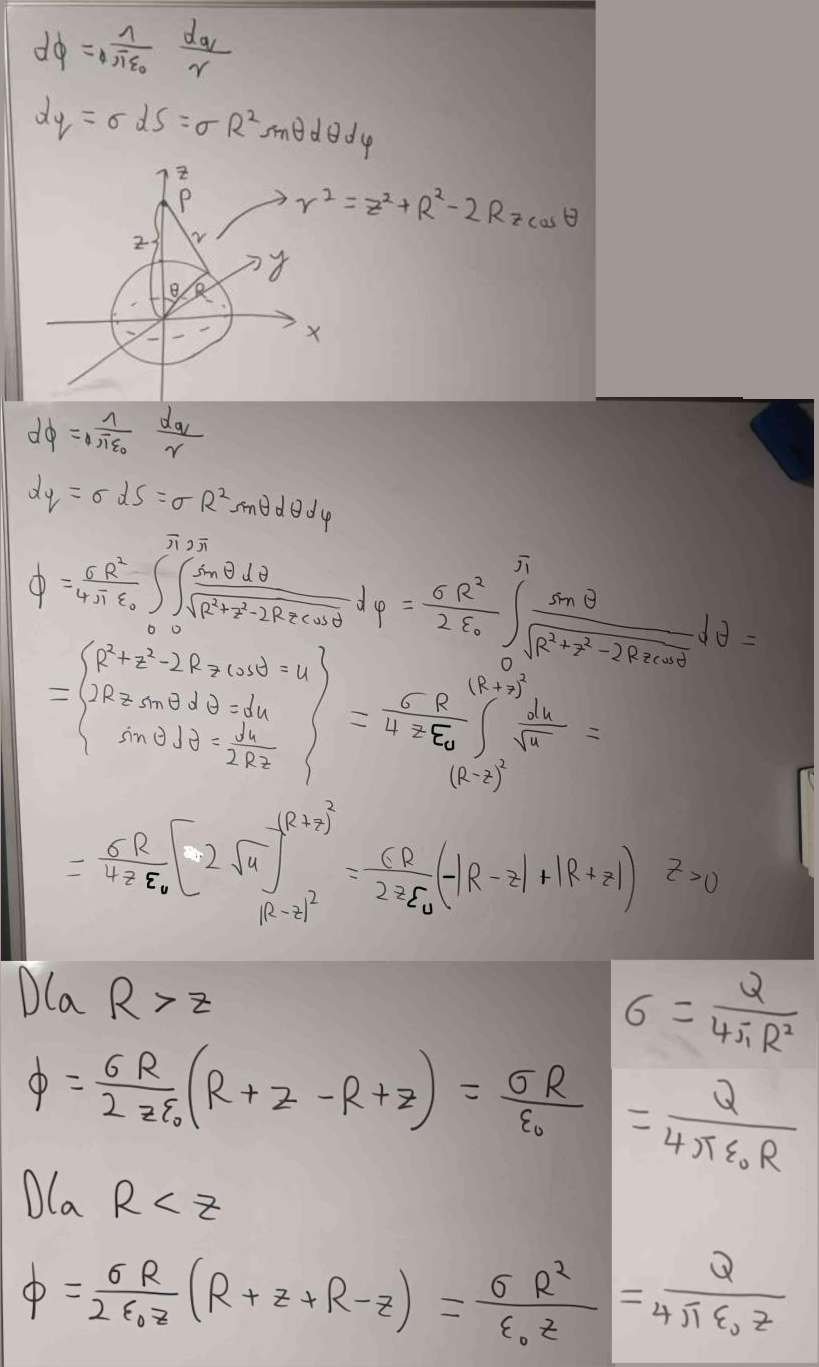 dϕ = 1/4πε₀ dq/r
dq = σ dS = σ R² sinθ dθ dφ
z
P
r² = z² + R² - 2Rz cos θ
z r
y
θ R
x
dϕ = 1/4πε₀ dq/r
dq = σ dS = σ R² sinθ dθ dφ
ϕ = σR²/4πε₀ ∫₀^π ∫₀^2π sinθ dθ/√(R²+z²-2Rz cosθ) dφ = σR²/2ε₀ ∫₀^π sinθ/√(R²+z²-2Rz cosθ) dθ =
= { R²+z²-2Rz cosθ = u
2Rz sinθ dθ = du
sinθ dθ = du/2Rz } = σR/4zε₀ ∫_(R-z)²^(R+z)² du/√u =
= σR/4zε₀ [2√u]_|R-z|²^(R+z)² = σR/2zε₀ (-|R-z| + |R+z|) z>0
Dla R > z
ϕ = σR/2zε₀ (R + z - R + z) = σR/ε₀
Dla R < z
ϕ = σR/2ε₀z (R + z + R - z) = σR²/ε₀z
σ = Q/4πR²
= Q/4πε₀R
= Q/4πε₀z